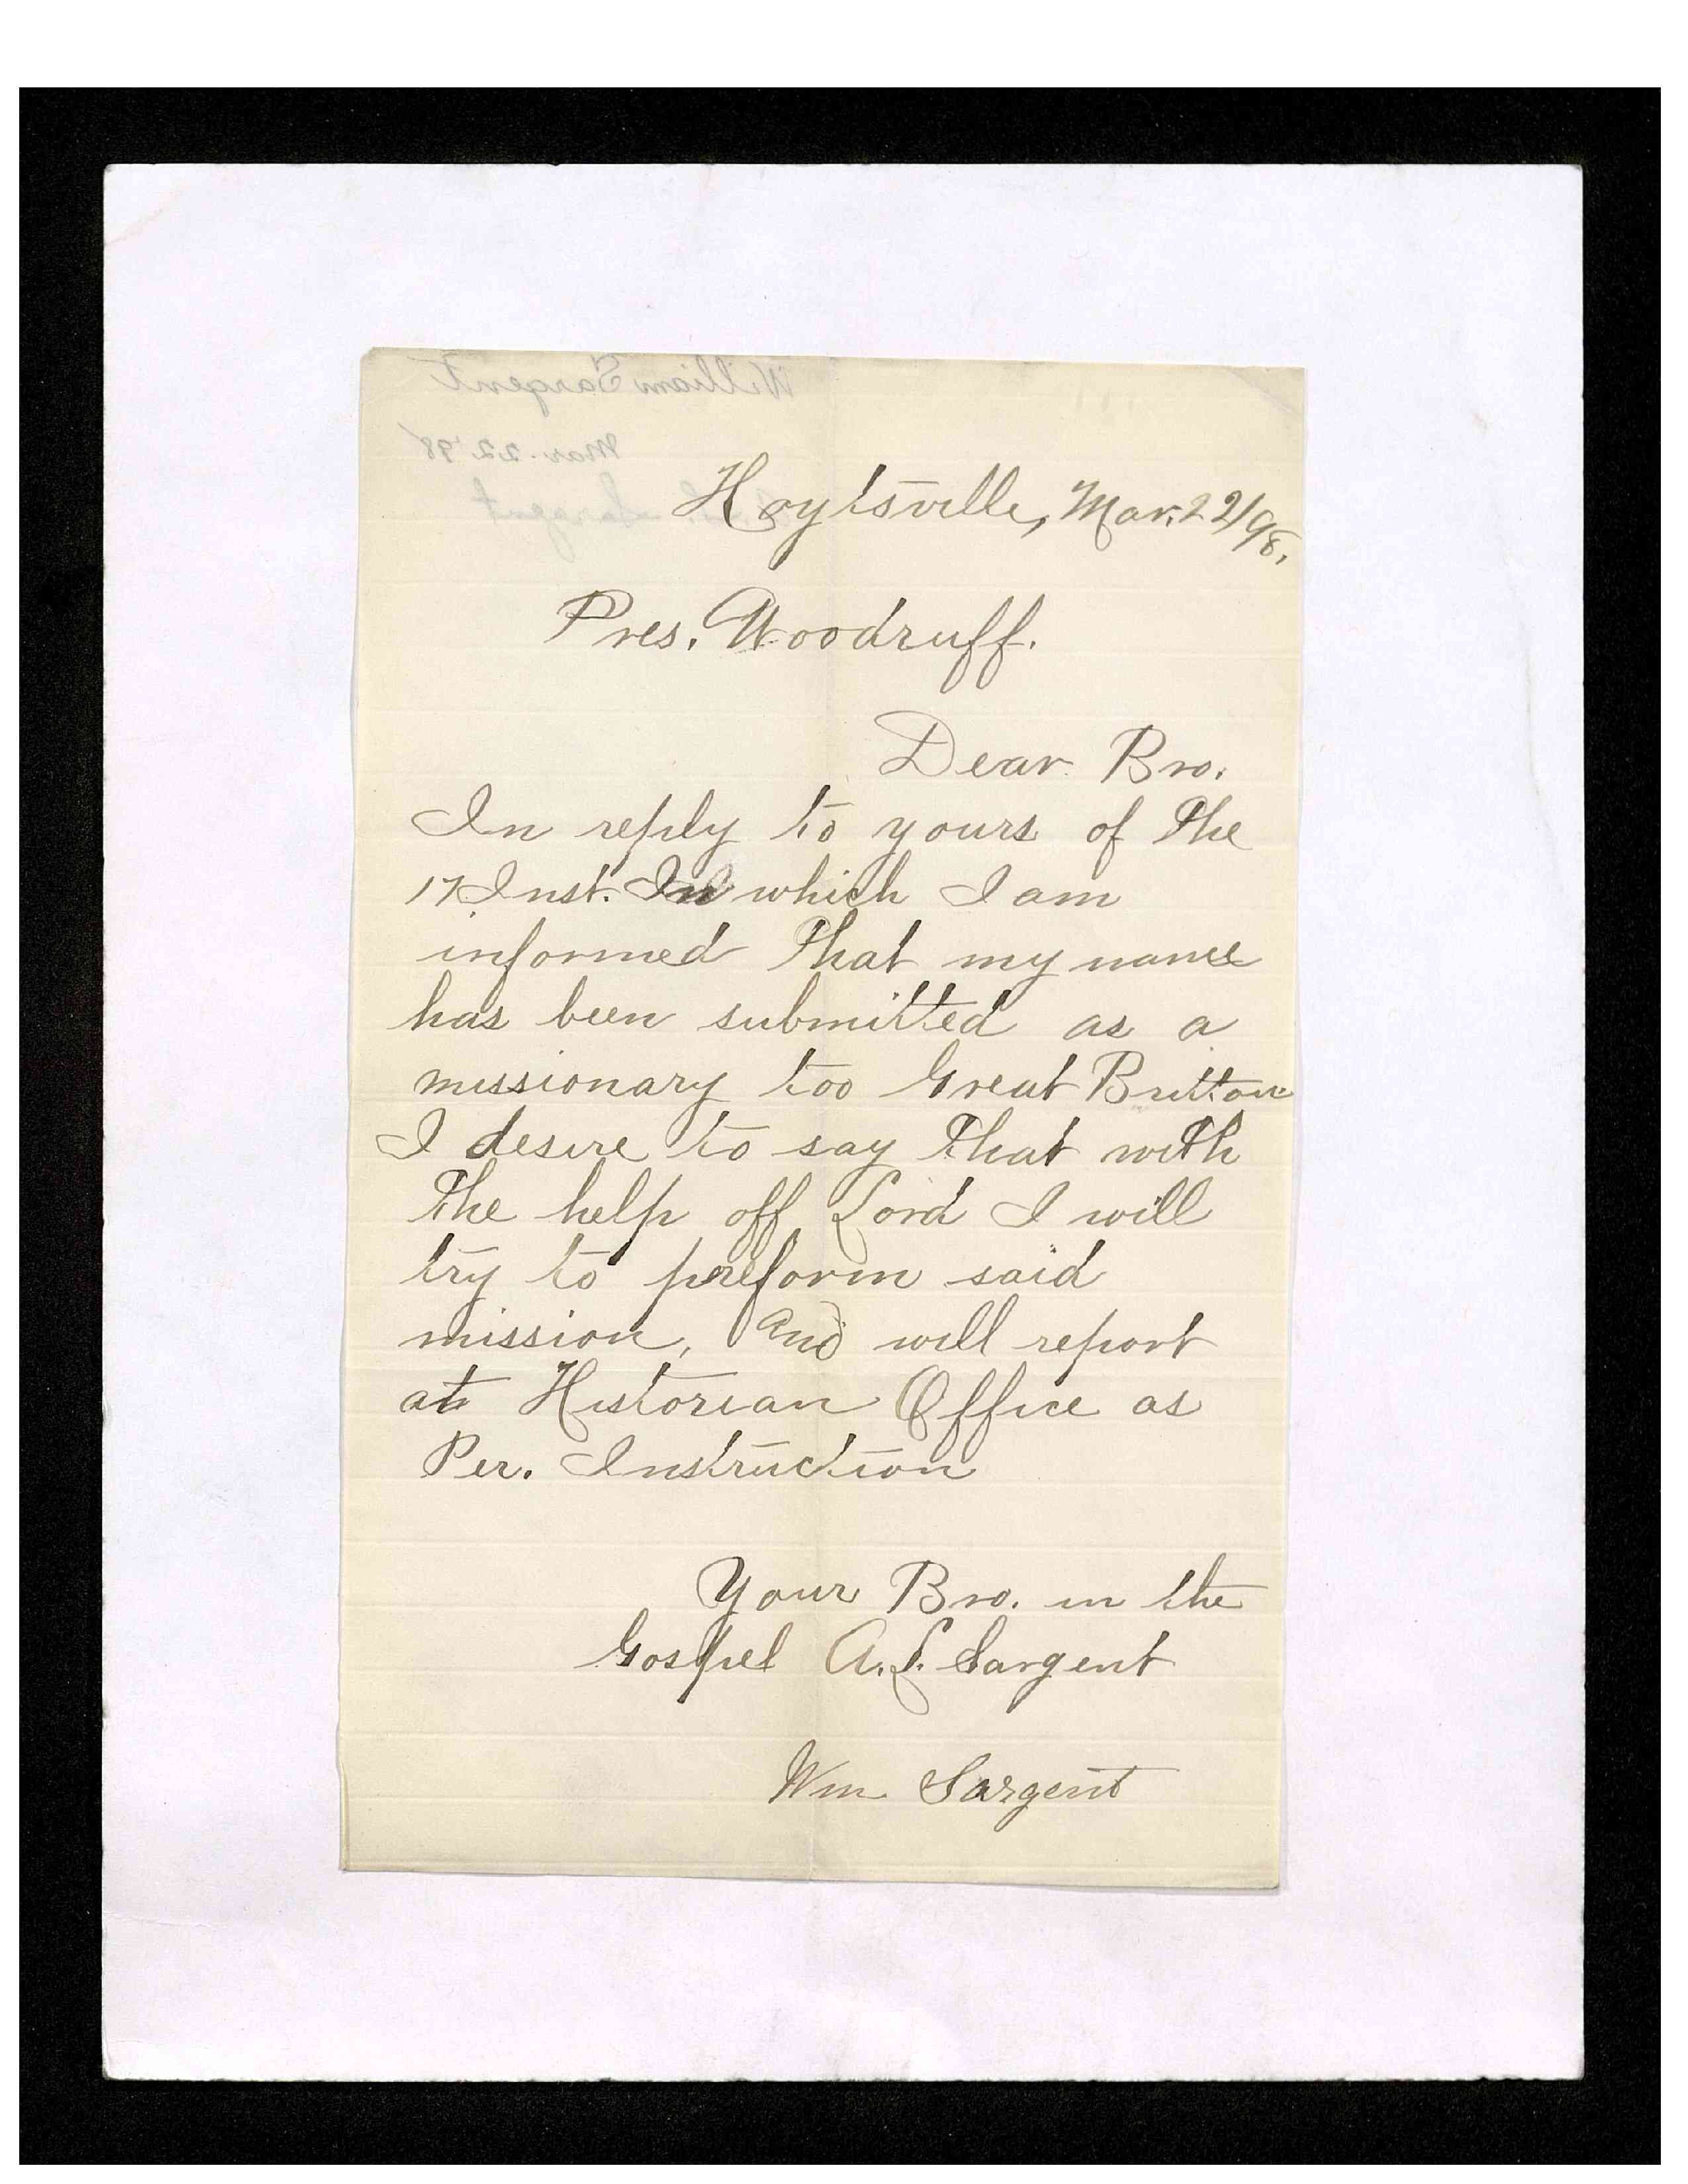 William Sargent
Mar. 22 '98
Sargent
Hoytsville, Mar. 22/98.
Pres. Woodruff.
Dear Bro.
In reply to yours of the
17 Inst. In which I am
informed that my name
has been submitted as a
missionary too Great Britton
I desire to say that with
the help off Lord I will
try to preform said
mission, and will report
at Historian Office as
Per. Instruction
Your Bro. in the
Gospel A. L. Sargent
Wm Sargent